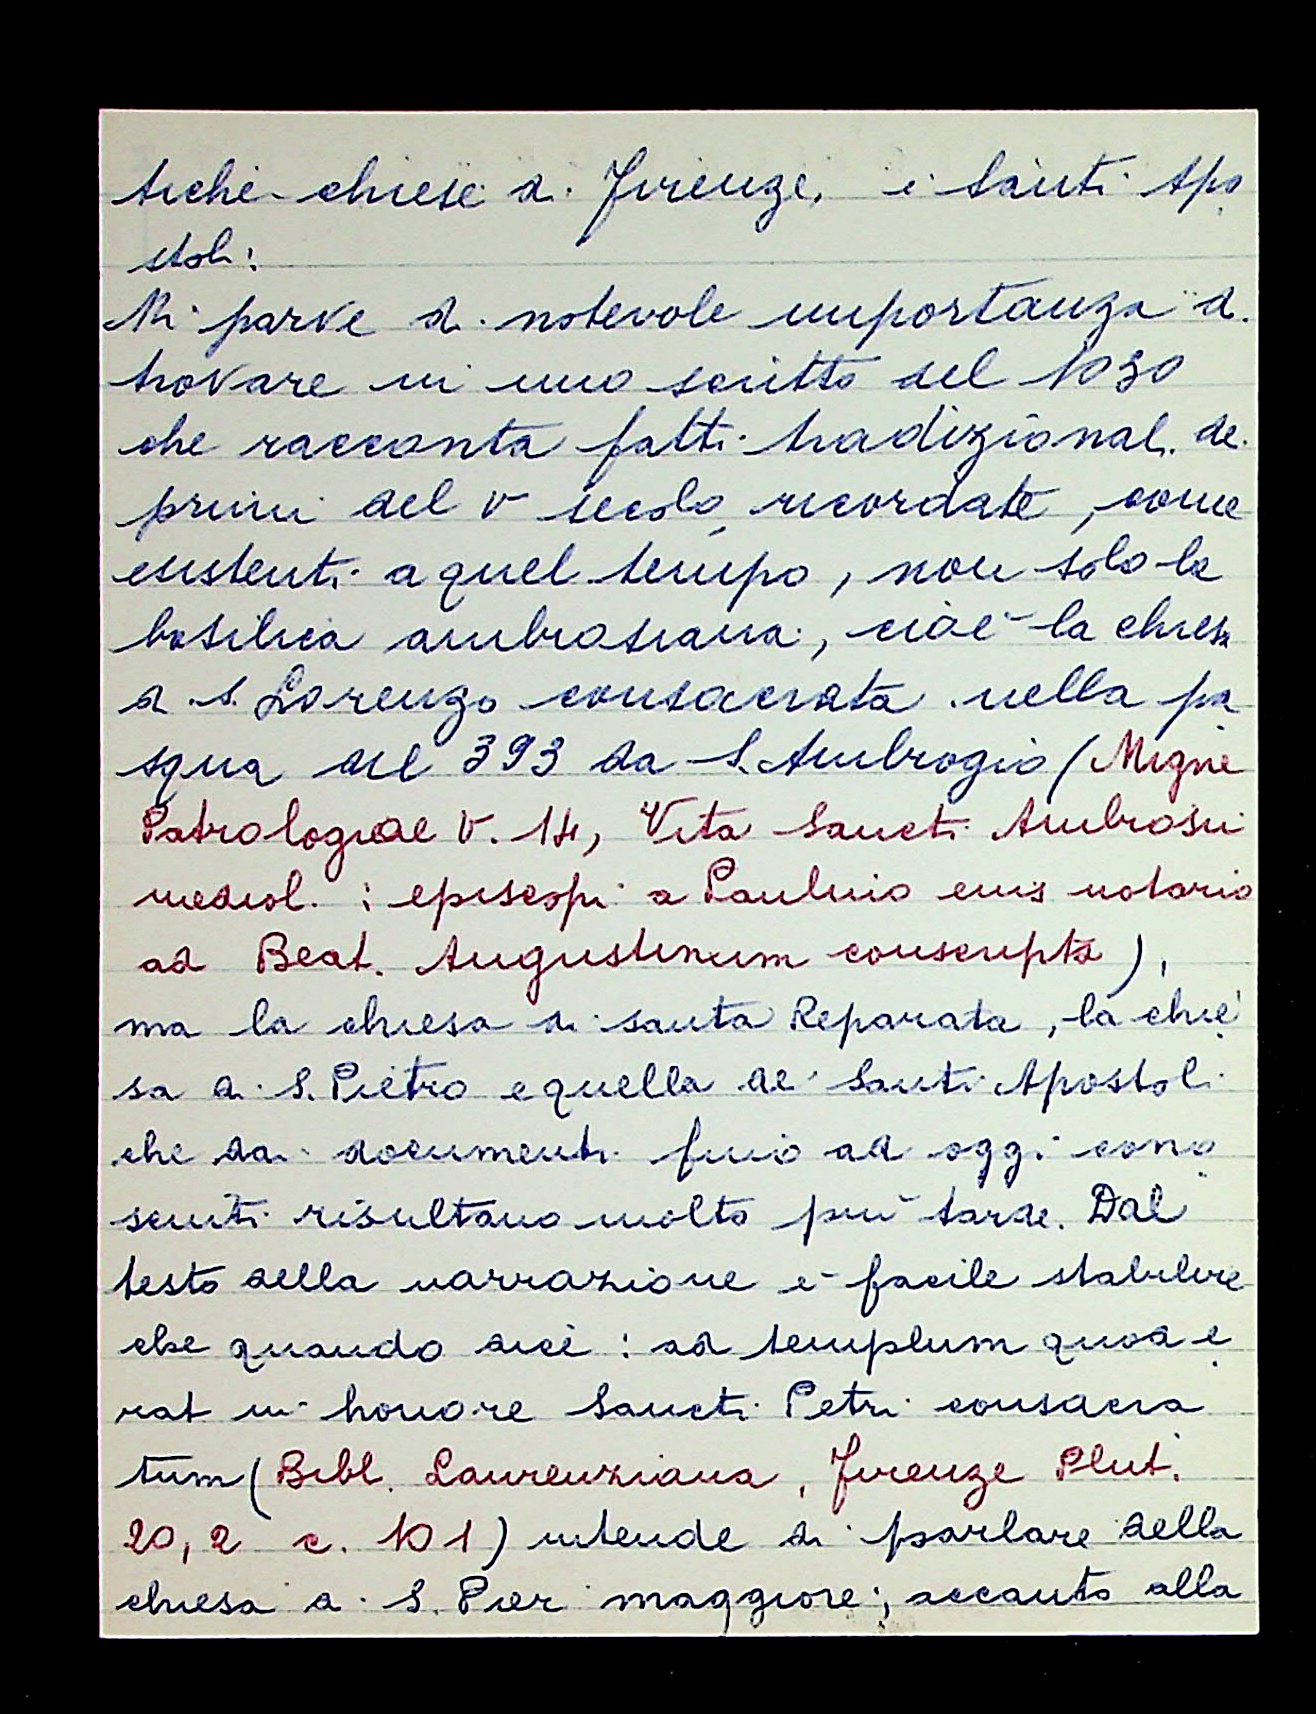 tiche chiese di Firenze, i Santi Apo
stoli:
Mi parve di notevole importanza di
trovare in uno scritto del 1030
che racconta fatti tradizionali dei
primi del V secolo ricordate, come
esistenti a quel tempo, non solo la
basilica ambrosiana, cioè la chiesa
di S. Lorenzo consacrata nella pa
squa del 393 da S. Ambrogio (Migne
Patrologiae V. 14, Vita Sancti Ambrosii
mediol. : episcopi a Paulino eius notario
ad Beat. Augustinum conscripta),
ma la chiesa di santa Reparata, la chie
sa di S. Pietro e quella dei Santi Apostoli
che dai documenti fino ad oggi cono
sciuti risultano molto più tarde. Dal
testo della narrazione è facile stabilire
che quando dice: ad templum quod e
rat in honore Sancti Petri consacra
tum (Bibl. Laurenziana, Firenze Plut.
20, 2 c. 101) intende di parlare della
chiesa di S. Pier maggiore; accanto alla